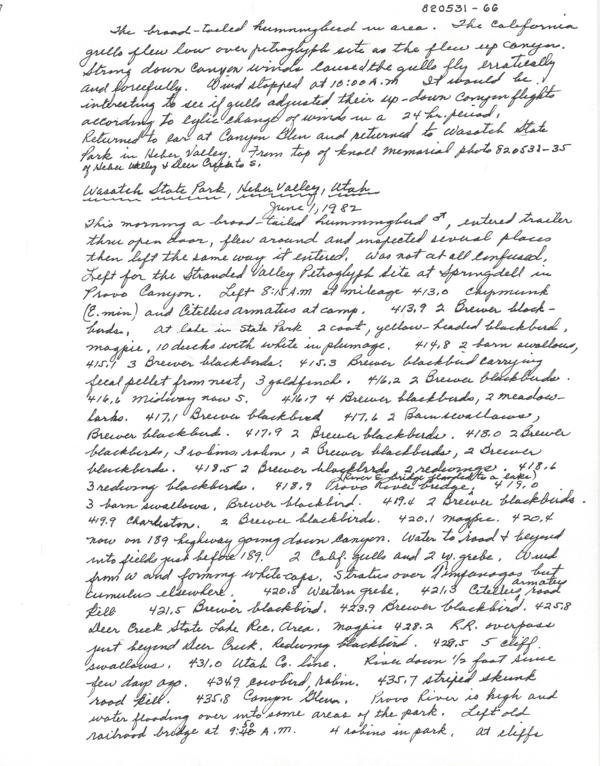 820531-66
The broad-tailed hummingbird in area. The California
gulls flew low over petroglyph site as the flew up canyon.
Strong down canyon winds caused the gulls fly erratically
and forcefully. Wind stopped at 10:00 A.M It would be
interesting to see if gulls adjusted their up-down canyon flights
according to cylic change of winds in a 24 hr. period.
Returned to car at Canyon Glen and returned to Wasatch State
Park in Heber Valley. From top of knoll Memorial photo 820531-35
of Heber Valley & Deer Creek to S.
Wasatch State Park, Heber Valley, Utah
June 1, 1982
This morning a broad-tailed hummmgbird ♂, entered trailer
thru open door, flew around and inspected several places
then left the same way it entered. Was not at all confused.
Left for the Stranded Valley Petroglyph site at Springdell in
Provo Canyon. Left 8:15 A.M at mileage 413.0 chipmunk
(E. min) and Citellus armatus at camp. 413.9 2 Brewer black-
birds. At lake in State Park 2 coot, yellow-headed blackbird,
magpie, 10 ducks with white in plumage. 414.8 2 barn swallows,
415.1 3 Brewer blackbirds. 415.3 Brewer blackbird carrying
fecal pellet from nest, 3 goldfinch. 416.2 2 Brewer blackbirds.
416.6 Midway now S. 416.7 4 Brewer blackbirds, 2 meadow-
larks. 417.1 Brewer blackbird 417.6 2 Barn swallows,
Brewer blackbird. 417.9 2 Brewer blackbirds. 418.0 2 Brewer
blackbirds, 3 robins, robin, 2 Brewer blackbirds, 2 Brewer
blackbirds. 418.5 2 Brewer blackbirds 2 redwings. 418.6
3 redwing blackbirds. 418.9 Provo River bridge, (River E. bridge flooded to a lake) 419.0
3 barn swallows, Brewer blackbird. 419.4 2 Brewer blackbirds.
419.9 Charleston. 2 Brewer blackbirds. 420.1 magpie. 420.4
now on 189 highway going down canyon. Water to road & beyond
into fields just before 189. 2 Calif. gulls and 2 w. grebe. Wind
from W and forming whitecaps. Stratus over Timpanogas but
cumulus elsewhere. 420.8 Western grebe. 421.3 Citellus armatus road
kill 421.5 Brewer blackbird. 423.9 Brewer blackbird. 425.8
Deer Creek State Lake Rec. Area. Magpie 428.2 R.R. overpass
just beyond Deer Creek. Redwing blackbird. 429.5 5 cliff
swallows. 431.0 Utah Co. line. River down 1/2 foot since
few days ago. 434.9 cowbird, robin. 435.7 striped skunk
road kill. 435.8 Canyon Glenn. Provo River is high and
water flooding over into some areas of the park. Left old
railroad bridge at 9: A.M. 4 robins in park. At cliffs